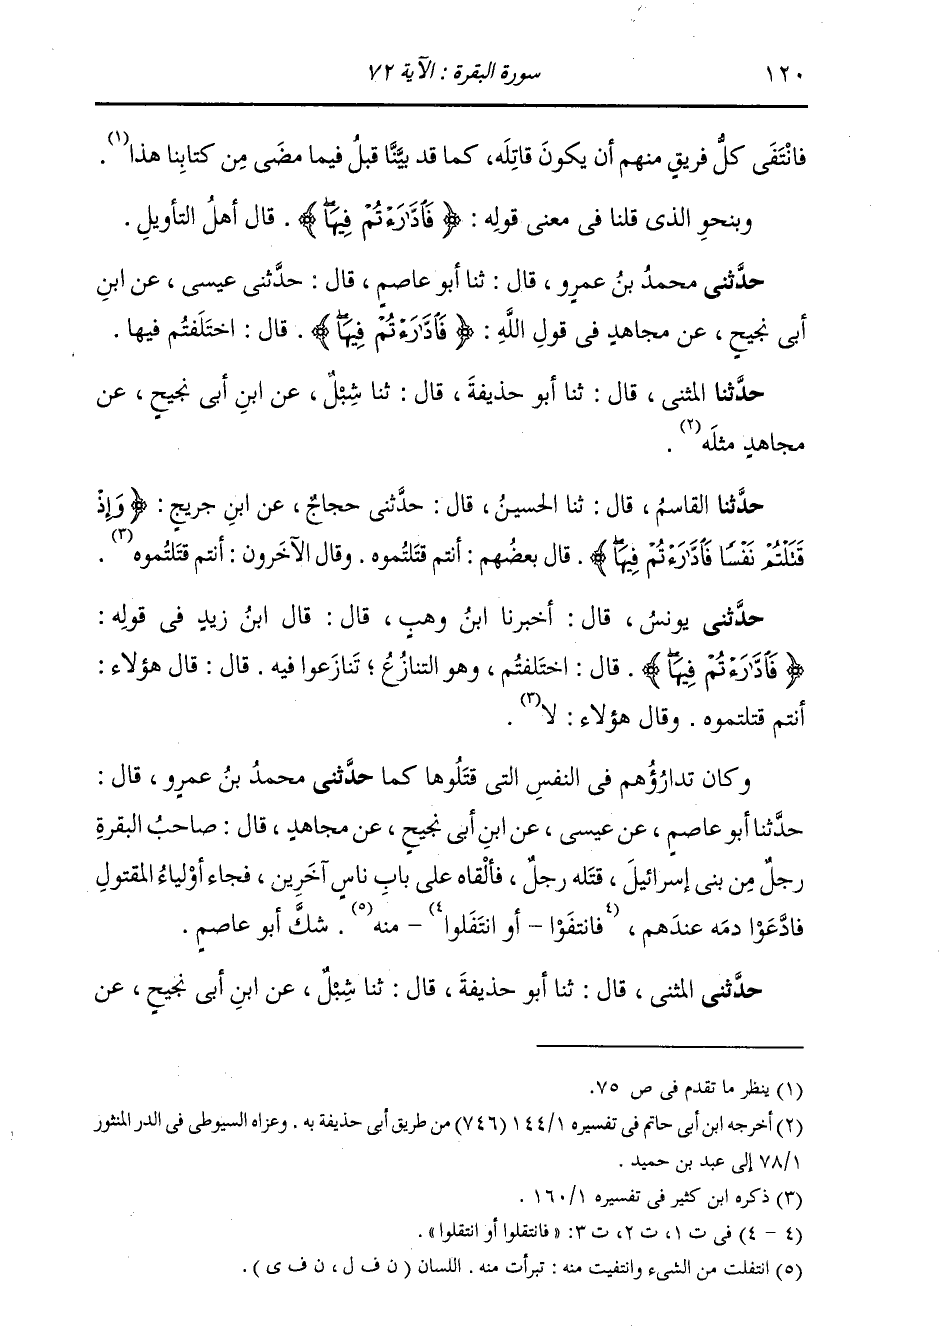 ١٢٠ سورة البقرة : الآية ٧٢
فانْتَفَى كلُّ فريقٍ منهم أن يكونَ قاتِلَه، كما قد بيَّنَّا قبلُ فيما مضَى مِن كتابِنا هذا(١).
وبنحوِ الذى قلنا فى معنى قولِه : ﴿فَٱدَّٰرَءْتُمْ فِيهَاۖ﴾ . قال أهلُ التأويلِ .
حدَّثنى محمدُ بنُ عمرٍو ، قال : ثنا أبو عاصمٍ ، قال : حدَّثنى عيسى ، عن ابنِ
أبى نجيحٍ ، عن مجاهدٍ فى قولِ اللَّهِ : ﴿فَٱدَّٰرَءْتُمْ فِيهَاۖ﴾ . قال : اختَلَفتُم فيها .
حدَّثنا المثنى ، قال : ثنا أبو حذيفةَ ، قال : ثنا شِبْلٌ ، عن ابنِ أبى نجيحٍ ، عن
مجاهدٍ مثلَه(٢) .
حدَّثنا القاسمُ ، قال : ثنا الحسينُ ، قال : حدَّثنى حجاجٌ ، عن ابنِ جريجٍ : ﴿وَإِذْ
قَتَلْتُمْ نَفْسًا فَٱدَّٰرَءْتُمْ فِيهَاۖ﴾ . قال بعضُهم : أنتم قتَلتُموه . وقال الآخَرون : أنتم قتَلتُموه(٣) .
حدَّثنى يونسُ ، قال : أخبرنا ابنُ وهبٍ ، قال : قال ابنُ زيدٍ فى قولِه :
﴿فَٱدَّٰرَءْتُمْ فِيهَاۖ﴾ . قال : اختَلَفتُم ، وهو التنازُعُ ؛ تَنازَعوا فيه . قال : قال هؤلاء :
أنتم قتلتموه . وقال هؤلاء : لا(٣) .
وكان تدارُؤُهم فى النفسِ التى قتَلُوها كما حدَّثنى محمدُ بنُ عمرٍو ، قال :
حدَّثنا أبو عاصمٍ ، عن عيسى ، عن ابنِ أبى نجيحٍ ، عن مجاهدٍ ، قال : صاحبُ البقرةِ
رجلٌ مِن بنى إسرائيلَ ، قتَله رجلٌ ، فألْقاه على بابِ ناسٍ آخَرِين ، فجاء أوْلياءُ المقتولِ
فادَّعَوْا دمَه عندَهم ، (٤فانتفَوْا - أو انتَفَلوا٤) - منه(٥) . شكَّ أبو عاصمٍ .
حدَّثنى المثنى ، قال : ثنا أبو حذيفةَ ، قال : ثنا شِبْلٌ ، عن ابنِ أبى نجيحٍ ، عن
(١) ينظر ما تقدم فى ص ٧٥.
(٢) أخرجه ابن أبى حاتم فى تفسيره ١٤٤/١ (٧٤٦) من طريق أبى حذيفة به . وعزاه السيوطى فى الدر المنثور
٧٨/١ إلى عبد بن حميد .
(٣) ذكره ابن كثير فى تفسيره ١٦٠/١ .
(٤ - ٤) فى ت ١، ت ٢، ت ٣: « فانتقلوا أو انتقلوا» .
(٥) انتفلت من الشىء وانتفيت منه : تبرأت منه . اللسان ( ن ف ل ، ن ف ى ) .